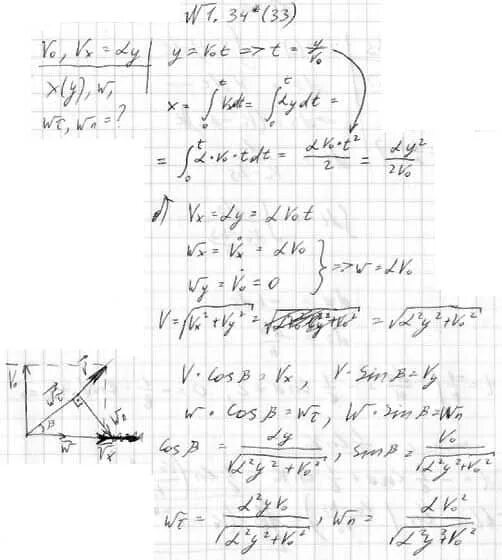 №1.34*(33)
V₀, Vx = αy
x(y), w,
wτ, wn = ?
y = V₀t => t = y/V₀
x = ∫₀ᵗ Vxdt = ∫₀ᵗ αy dt =
= ∫₀ᵗ α·V₀·t dt = αV₀·t²/2 = αy²/2V₀
б) Vx = αy = αV₀t
wx = V̇x = αV₀
wy = V̇₀ = 0
} => w = αV₀
V = √(Vx²+Vy²) = = √(α²y²+V₀²)
V·cosβ = Vx, V·sinβ = Vy
w·cosβ = wτ, w·sinβ = wn
cosβ = αy/√(α²y²+V₀²), sinβ = V₀/√(α²y²+V₀²)
wτ = α²yV₀/√(α²y²+V₀²), wn = αV₀²/√(α²y²+V₀²)
V₀
V
wτ
β
wn
w
Vx